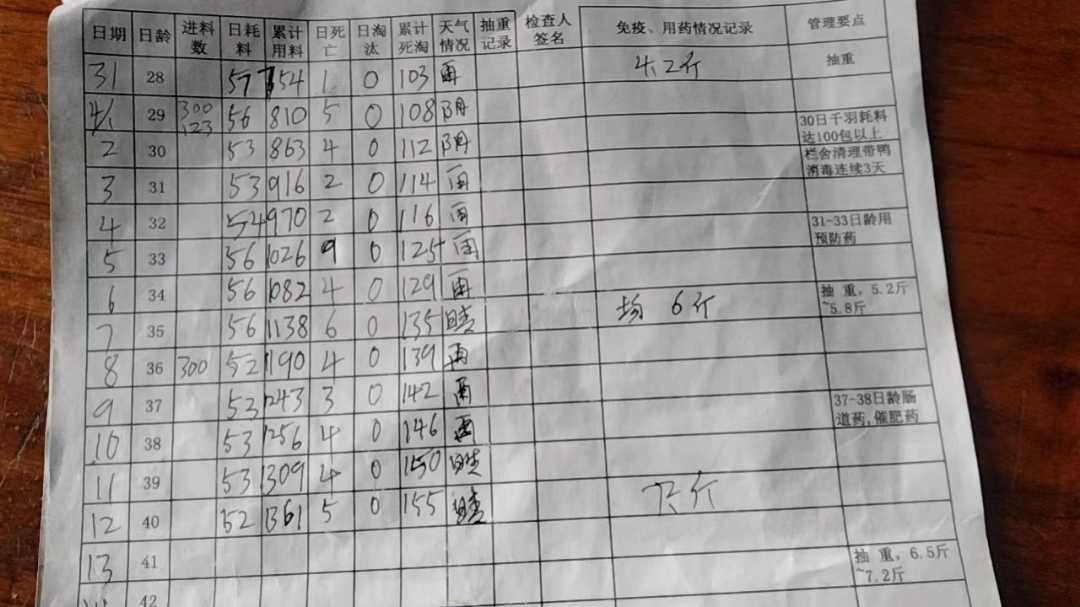 日期 日龄 进料数 日耗料 累计用料 日死亡 日淘汰 累计死淘 天气情况 抽重记录 检查人签名 免疫、用药情况记录 管理要点
31 28 57 754 1 0 103 雨 4.2斤 抽重
4/1 29 300 123 56 810 5 0 108 阴 30日千羽耗料达100包以上
2 30 53 863 4 0 112 阴 栏舍清理带鸭消毒连续3天
3 31 53 916 2 0 114 雨
4 32 54 970 2 0 116 雨 31-33日龄用预防药
5 33 56 1026 9 0 125 雨
6 34 56 1082 4 0 129 雨 抽 重，5.2斤~5.8斤
7 35 56 1138 6 0 135 晴 6斤
8 36 300 52 1190 4 0 139 雨
9 37 53 1243 3 0 142 雨 37-38日龄肠道药,催肥药
10 38 53 1256 4 0 146 雨
11 39 53 1309 4 0 150 晴
12 40 52 1361 5 0 155 晴 斤
13 41 抽 重，6.5斤~7.2斤
42